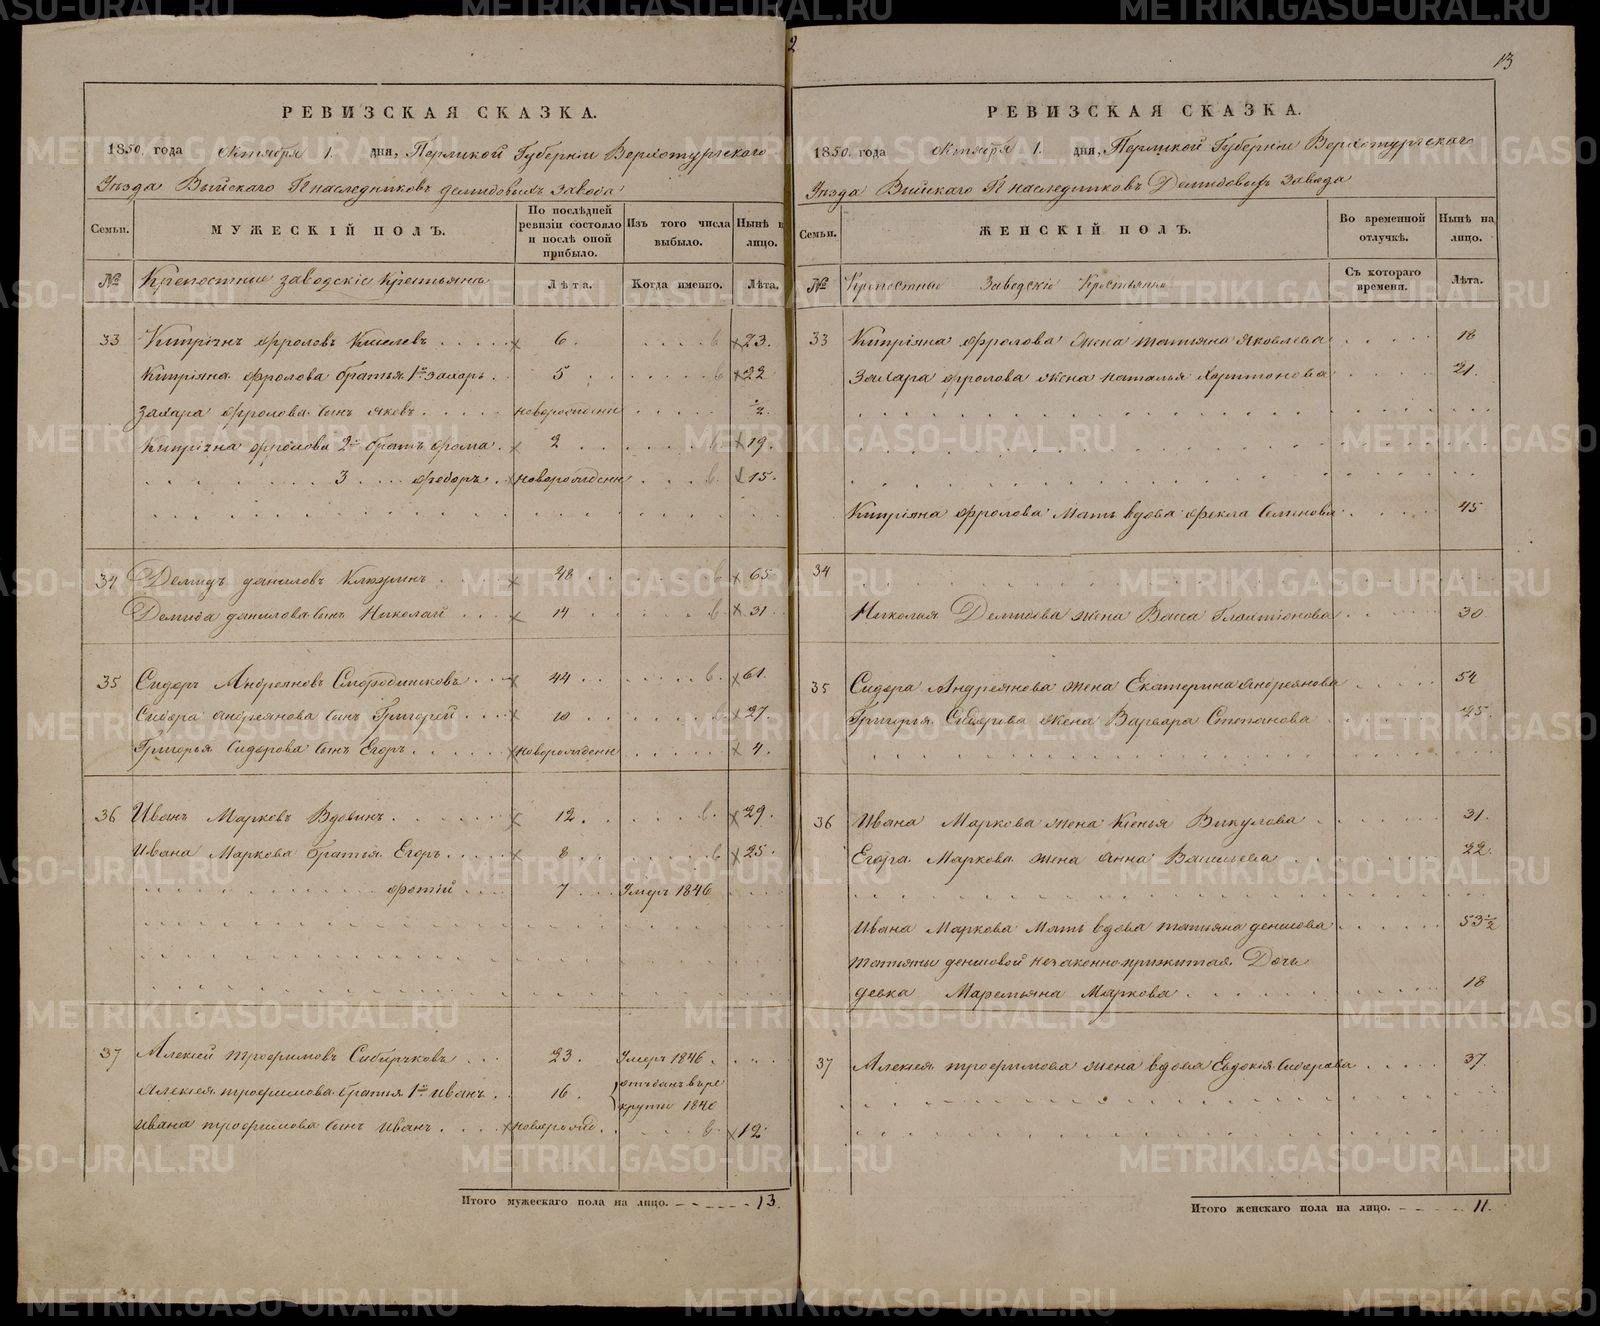 2
13
РЕВИЗСКАЯ СКАЗКА.
1850. года октября 1. дня, Пермской Губерніи Верхотурьскаго
Уѣзда Выйскаго Гг наследниковъ демидовыхъ завода
Семьи.
МУЖЕСКІЙ ПОЛЪ.
По послѣдней ревизіи состояло и послѣ оной прибыло.
Изъ того числа выбыло.
Нынѣ на лицо.
№ Крепостные заводскіе Крестьяне
Лѣта. Когда именно. Лѣта.
33 Кипріянъ фроловъ Киселевъ 6. 23.
Кипріяна фролова братья 1й захаръ 5 22
Захара фролова сынъ яковъ новорожденн ½
Кипріяна фролова 2й братъ фома 2 19.
3 федоръ новорожденн 15.
34 Демидъ даниловъ Клюкинъ 48 65
Демида данилова сынъ Николай 14 31
35 Сидоръ Андреяновъ Смородинсковъ 44 61.
Сидора андреянова сынъ Григорей 10 27.
Григорья Сидорова сынъ Егоръ новорожденн 4.
36 Иванъ Марковъ Вдовинъ 12. 29.
Ивана Маркова братья Егоръ 8 25.
фотій 7 Умеръ 1846
37 Алексей трофимовъ Сидорковъ 23. Умеръ 1846
Алексея трофимова братья 1й иванъ 16. отъданъ въ рекруты 1840
ивана трофимова сынъ иванъ новорожд. 12.
Итого мужескаго пола на лицо. 13.
РЕВИЗСКАЯ СКАЗКА.
1850. года октября 1. дня, Пермской Губерніи Верхотурьскаго
Уѣзда Выйскаго Гг наследниковъ Демидовыхъ завода
Семьи.
ЖЕНСКІЙ ПОЛЪ.
Во временной отлучкѣ.
Нынѣ на лицо.
№ Крепостные Заводскіе Крестьяне
Съ котораго времени. Лѣта.
33 Кипріяна фролова жена татьяна Яковлева 18
Захара фролова жена наталья Харитонова 21.
Кипріяна фролова мать вдова фекла Семенова 45
34
Николая Демидова жена Васса Галактіонова 30
35 Сидора Андреянова жена Екатерина Андреянова 54
Григорья Сидорова жена Варвара Степанова 25.
36 Ивана Маркова жена Ксенья Викулова 31.
Егора Маркова жена анна Васильева 22.
Ивана Маркова мать вдова татьяна денисова 53½
татьяны денисовой незаконноприжитая Дочь
девка Маремьяна Маркова 18
37 Алексея трофимова жена вдова Евдокія Сидорова 37.
Итого женскаго пола на лицо. 11.
METRIKI.GASO-URAL.RU